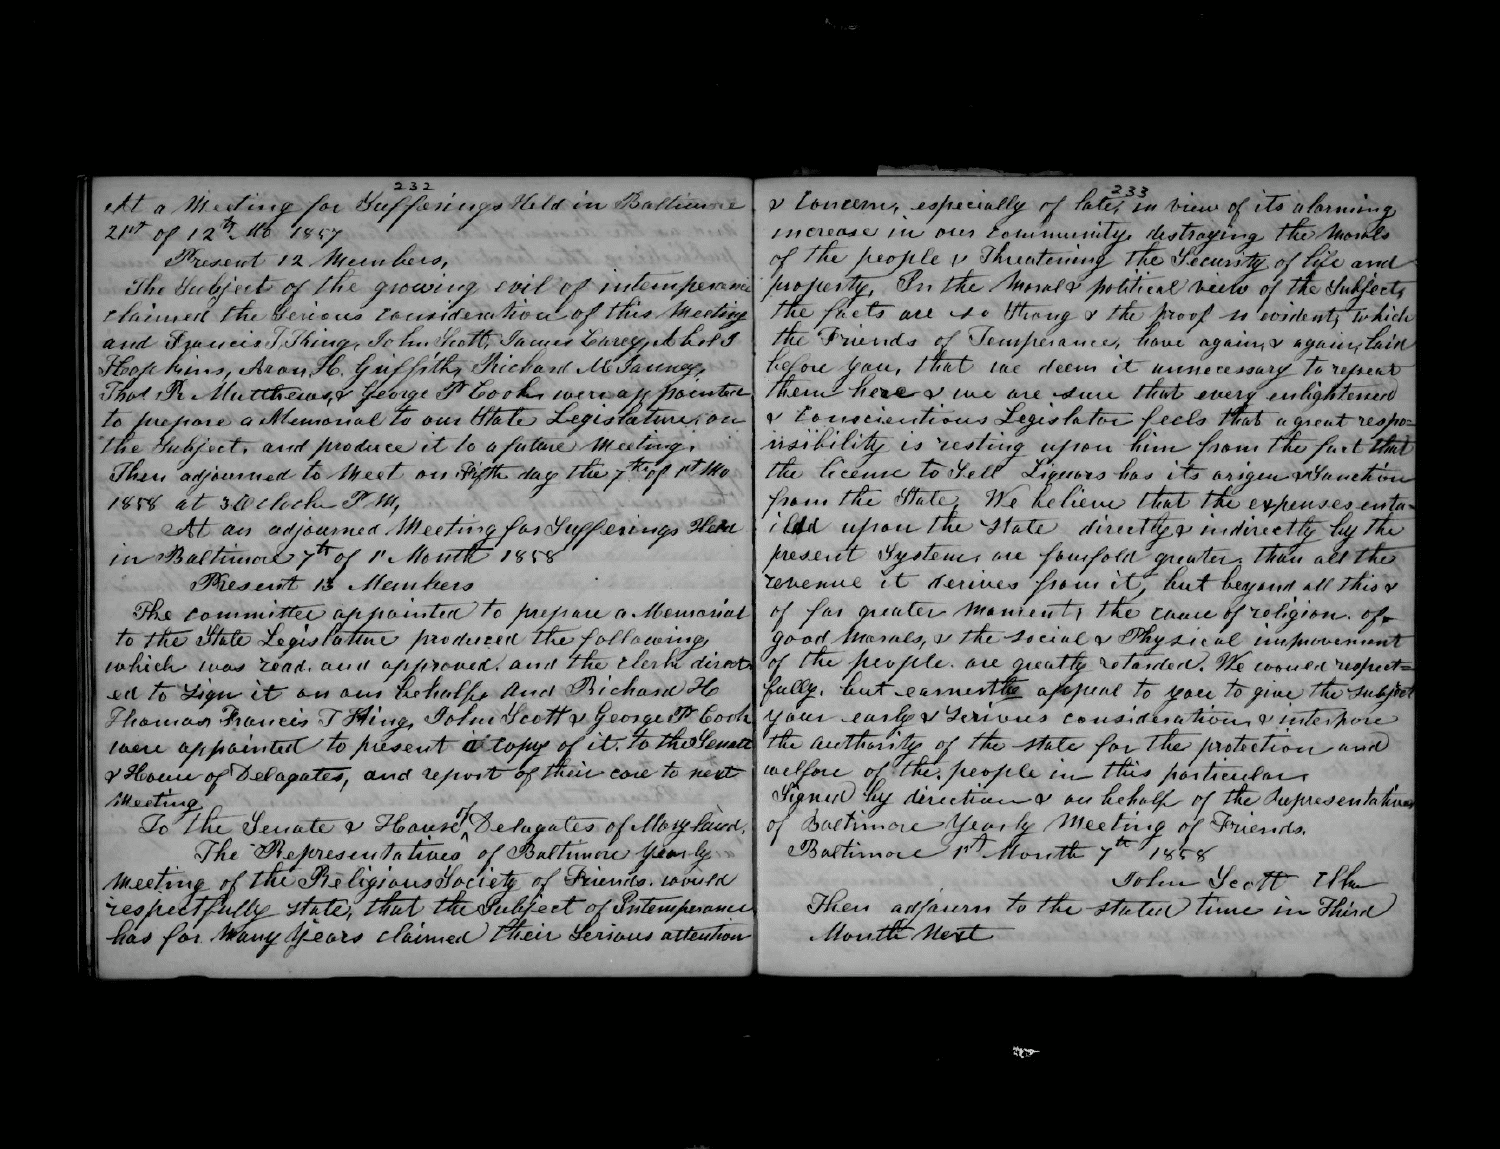 232
At a Meeting for Sufferings Held in Baltimore
21st of 12th Mo 1857
Present 12 Members,
The Subject of the growing evil of intemperance
claimed the Serious consideration of this Meeting
and Francis T. King, John Scott, James Carey,
Hopkins, Aron H. Griffith, Richard M Janney,
Thos R. Matthews, & George P Cook were appointed
to prepare a Memorial to our State Legislature, on
the Subject, and produce it to a future Meeting.
Then adjourned to Meet on Fifth day the 7th of 1st Mo
1858 at 3 Oclock P M,
At an adjourned Meeting for Sufferings Held
in Baltimore 7th of 1st Month 1858
Present 13 Members
The committee appointed to prepare a Memorial
to the State Legislature produced the following,
which was read, and approved, and the clerk direct-
ed to Sign it on our behalf, And Richard H
Thomas, Francis T King, John Scott & George P Cook
were appointed to present a copy of it, to the Senate
& House of Delagates, and report of their care to next
Meeting
To the Senate & House of Delagates of Maryland,
The Representatives of Baltimore Yearly
Meeting of the Religious Society of Friends, would
respectfully state, that the Subject of Intemperance
has for Many Years claimed their Serious attention
233
& Concern, especially of late, in view of its alarming
increase in our community, destroying the Morals
of the people & Threatening the Security of life and
property. In the Moral & political view of the Subject,
the facts are so Strong & the proof so evident, which
the Friends of Temperance, have again, & again, laid
before you, that we deem it unnecessary to repeat
them here & we are sure that every enlightened
& Conscientious Legislator feels that a great respo-
nsibility is resting upon him from the fact that
the license to Sell Liquors has its origin & Sanction
from the State. We believe that the expenses enta-
iled upon the State directly & indirectly by the
present System, are fourfold greater, than all the
revenue it derives from it, but beyond all this &
of far greater Moment, the cause of religion, of
good Morals, & the social & Physical improvement
of the people, are greatly retarded. We would respect-
fully, but earnestly appeal to you to give the subject
your early & Serious consideration, & interpose
the authority of the state for the protection and
welfare of the people in this particular,
Signed by direction & on behalf of the Representatives
of Baltimore Yearly Meeting of Friends.
Baltimore 1st Month 7th 1858
John Scott Clk
Then adjourn to the stated time in Third
Month Next